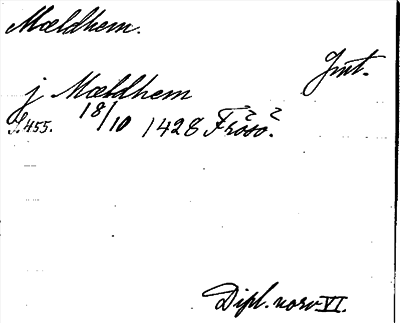 Mældhem.
Jmt.
j Mældhem
S. 455. 18/10 1428 Frösö.
Dipl. norv VI.